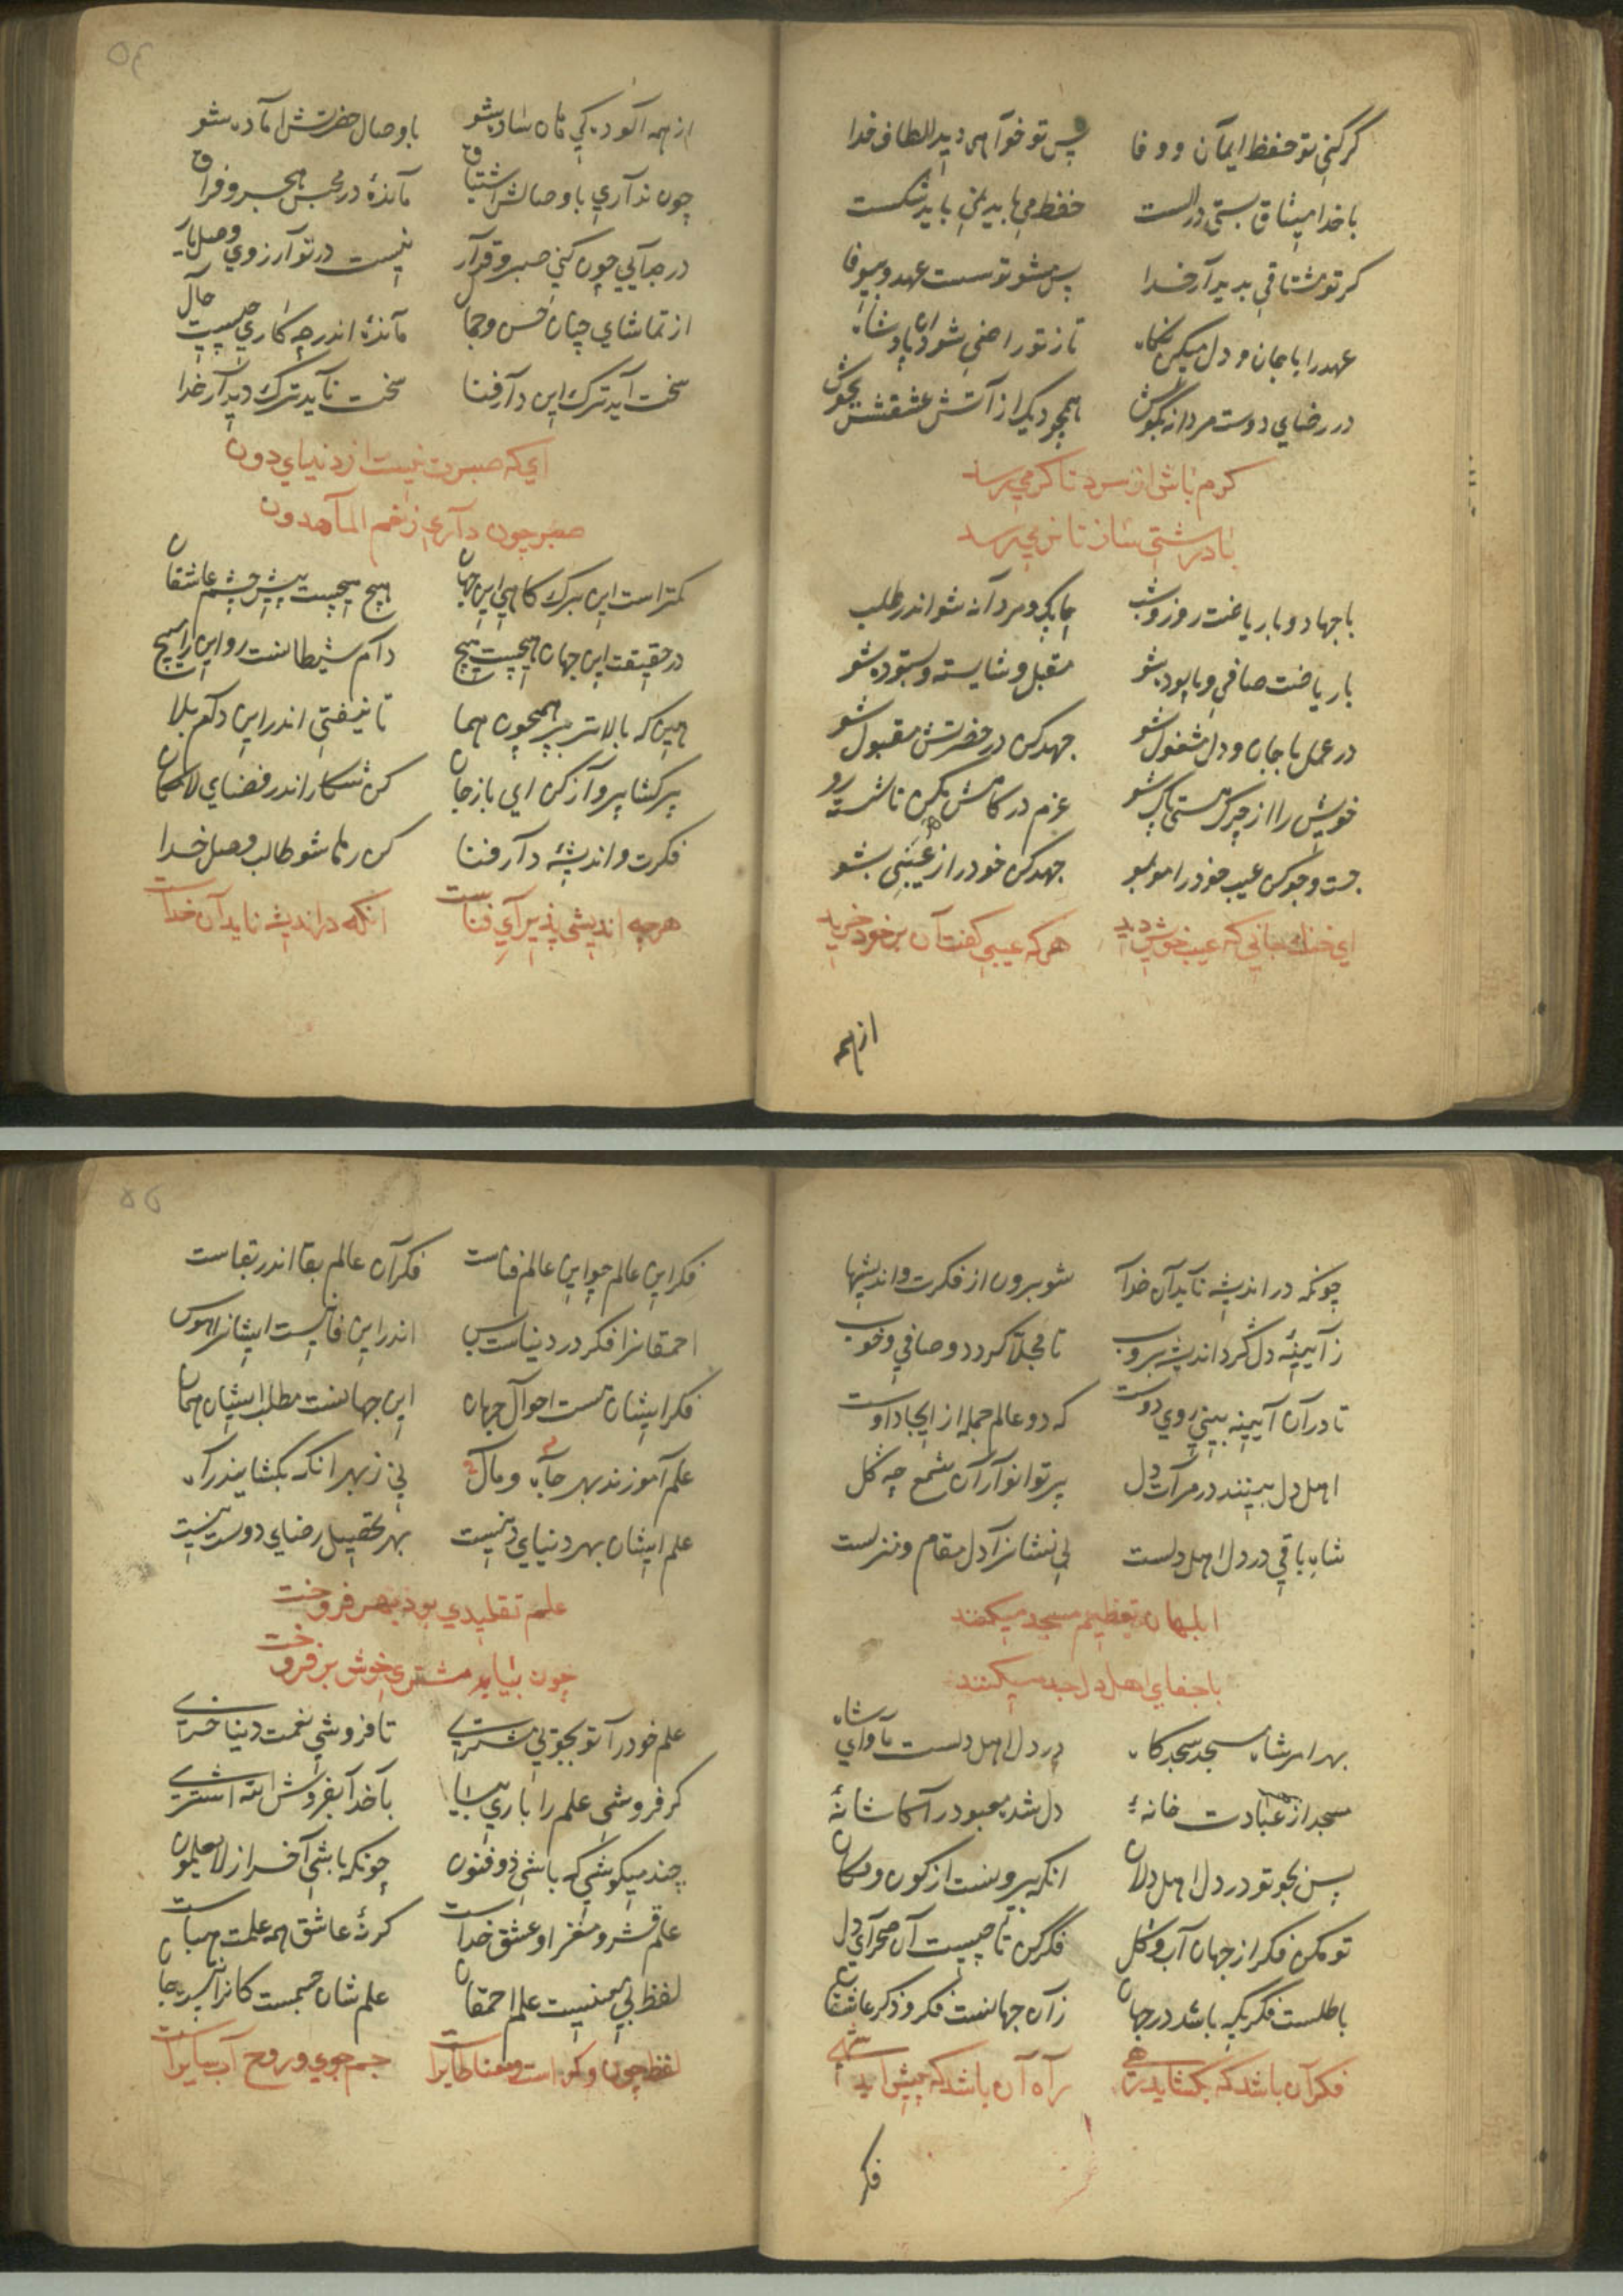 گر کنی تو حفظ ایمان و وفا پس تو خواهی دید الطاف خدا
با خدا میثاق بستی در الست حفظ می باید نمی باید شکست
گر تو مشتاقی بدیدار خدا پس مشو تو سست عهد و بیوفا
عهد را با جان و دل میکن نگاه تا ز تو راضی شود آن پادشاه
در رضای دوست مردانه بکوش همچو دیک از آتش عشقش بجوش
گرم باش از سرد تا گرمی رسد
با درشتی ساز تا نرمی رسد
با جهاد و با ریاضت روز و شب چابک و مردانه شو اندر طلب
با ریاضت صافی و پالوده شو مقبل و شایسته و بستوده شو
در عمل با جان و دل مشغول شو جهد کن در حضرتش مقبول شو
خویش را از چرک هستی پاک شو عزم درکاهش بکن تا شسته رو
جست و جو کن عیب خود را مو بمو جهد کن خود را ز عیبی بشو
ای خنک جانی که عیب خویش دید هر که عیبی گفت آن بر خود خرید
از همه
۵۴
از همه آلودکی پاه ساده شو با وصال حضرتش آماده شو
چون نداری با وصالش اشتیاق مانده در حبس هجر و فراق
در جدایی چون کنی صبر و قرار نیست در تو آرزوی وصل یار
از تماشای چنان حسن و جمال مانده اندر چه کاری چیست حال
سخت آید ترک این دار فنا سخت ناید ترک دیدار خدا
ای که صبرت نیست از دنیای دون
صبر چون داری ز نعم الماهدون
کمتر است این برک کاهی این جهان هیچ هیچست پیش چشم عاشقان
در حقیقت این جهان هیچست هیچ دام شیطانست رو این را مپیچ
هین که بالاتر بپر همچون هما تا نیفتی اندر این دام بلا
پر کشا پرواز کن ای باز جان کن شکار اندر فضای لامکان
فکرت و اندیشۀ دار فنا کن رها شو طالب وصل خدا
هر چه اندیشی پذیرای فناست انکه در اندیشه ناید آن خداست
چونکه در اندیشه ناید آن خدا شو برون از فکرت و اندیشها
ز آیینۀ دل گرد اندیشه بروب تا مجلّا کردد و صافی و خوب
تا در آن آیینه بینی روی دوست که دو عالم جمله از ایجاد اوست
اهل دل بینند در مرآت دل پرتو انوار آن شمع چه کل
شاه باقی در دل اهل دلست بی نشانرا دل مقام و منزلست
ابلهان تعظیم مسجد میکنند
با جفای اهل دل جد میکنند
بهر امر شاه مسجد سجدکاه در دل اهل دلست مأوای شاه
مسجد از بهر عبادت خانۀ دل شد معبود را کاشانۀ
پس بجو تو در دل اهل دلان انکه بیرونست از کون و مکان
تو مکن فکر از جهان آب و گل فکر کن تا چیست آن صحرای دل
باطلست فکری که باشد در جهان زان جهانست فکر و ذکر عاشقان
فکر آن باشد که بکشاید رهی راه آن باشد که پیش آید شهی
فکر
۵۵
فکر این عالم چو این عالم فناست فکر آن عالم بقا اندر بقاست
احمقانرا فکر در دنیاست بس اندر این فانیست ایشانرا هوس
فکر ایشان هست احوال جهان این جهانست مطلب ایشان همان
علم آموزند بهر جاه و مال نی ز بهر انکه بکشایند راه
علم ایشان بهر دنیای دنیست بهر تحصیل رضای دوست نیست
علم تقلیدی بود بهر فروخت
چون بیاید مشتری خوش بر فروخت
علم خود را تو بجویی مشتری تا فروشی نعمت دنیا خری
گر فروشی علم را باری بیا با خدا بفروش الله اشتری
چند میکوشی که باشی ذو فنون چونکه باشی آخر از لا یعلمون
علم قشر و مغز او عشق خداست گر نۀ عاشق همه علمت هباست
لفظ بی معنیست علم احمقان علم شان جسمست کانرا نیست جان
لفظ چون وکر است و معنا طایرست جسم جوی و روح آب سایرست